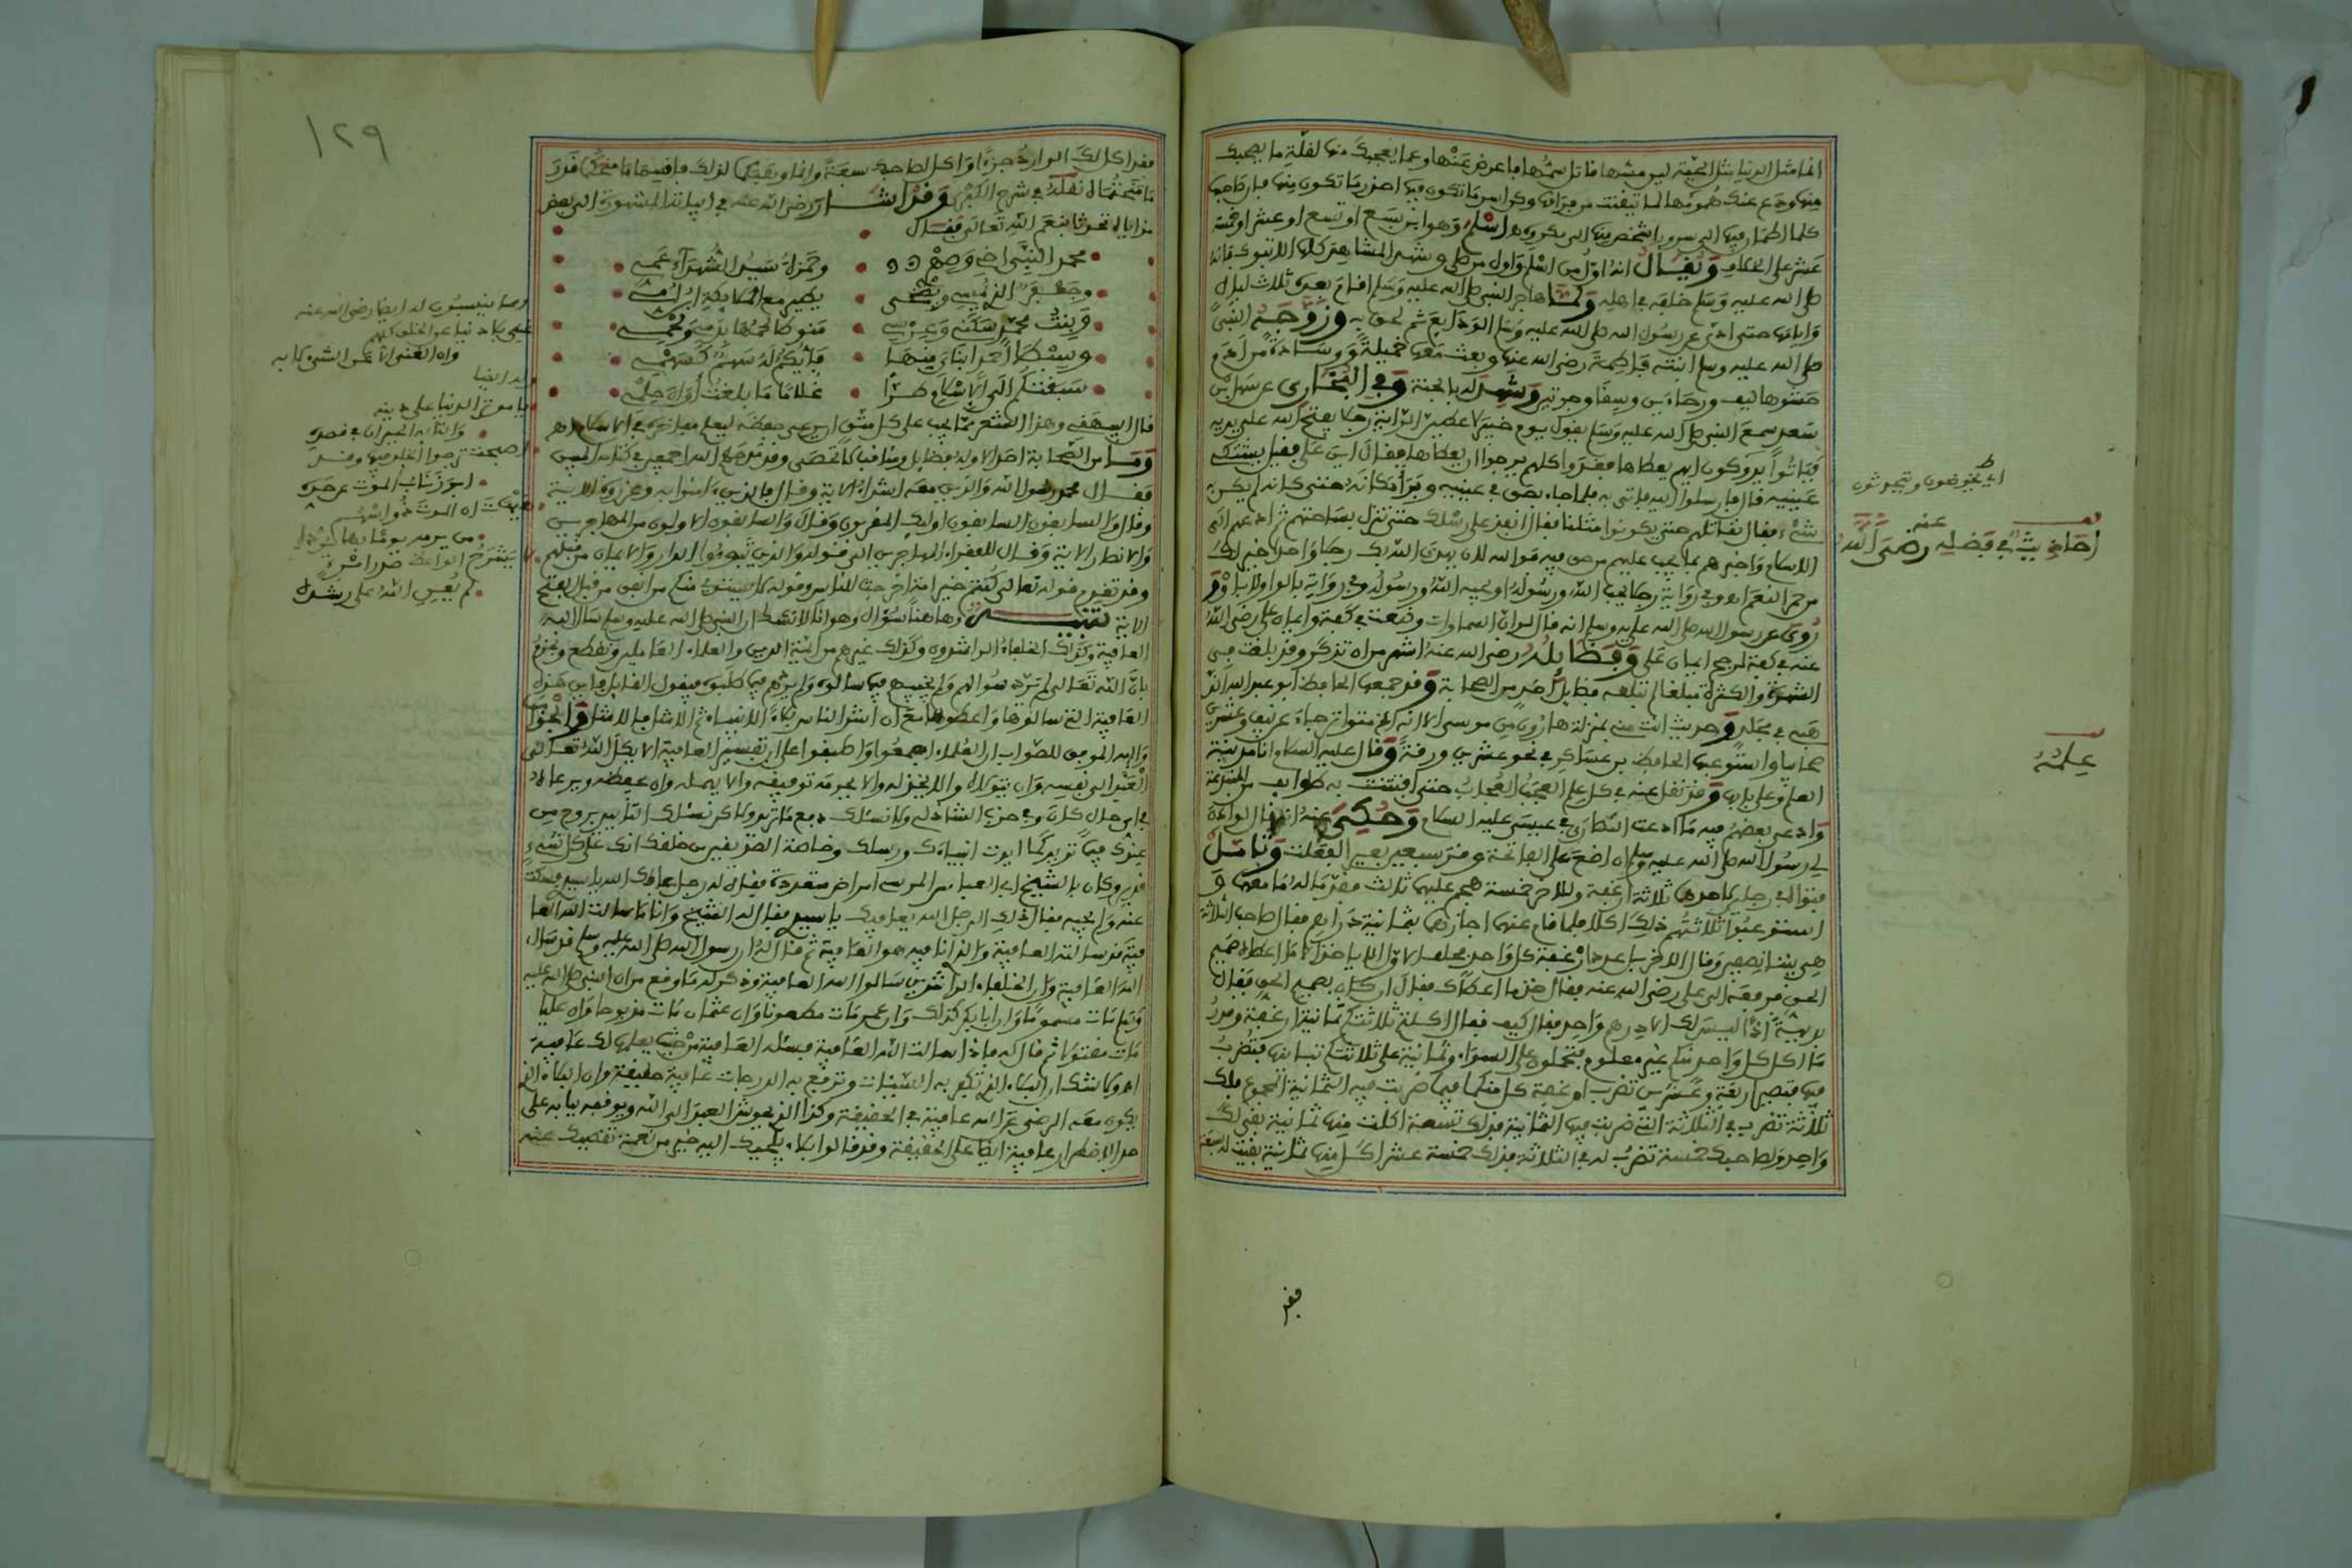 انما مثل الدنيا مثل الحية لين مسها قاتل سمها فاعرض عنها وعما يعجبك منها لقلة ما يصحبك
منها ودع عنك همومها لما تيقنت من فراقها وكن اسر ما تكون فيها احذر ما تكون منها فان صاحبها
كلما اطمأن فيها الى سرور اشخص منها الى مكروه اسلم وهو ابن سبع او تسع او عشر او خمسة
عشر على الخلاف ويقال انه اول من اسلم واول من صلى وشهد المشاهد كلها الا تبوك فانه
صلى الله عليه وسلم خلفه في اهله ولما هاجر النبي صلى الله عليه وسلم اقام بعده ثلاث ليال
وايامها حتى ادى عن رسول الله صلى الله عليه وسلم الودايع ثم لحق به وزوجه النبي
صلى الله عليه وسلم ابنته فاطمة رضي الله عنها وبعث معها خميلة ووسادة من ادم
حشوها ليف ورحاءين وسقا وجرتين وشهد له بالجنة وفي البخاري عن سهل بن
سعد سمع النبي صلى الله عليه وسلم يقول يوم خيبر لاعطين الراية رجلا يفتح الله على يديه
فباتوا يدوكون ايهم يعطاها فغدوا وكلهم يرجوا ان يعطاها فقال اين علي فقيل يشتكي
عينيه قال فارسلوا اليه فاتي به فلما جاء بصق في عينيه وبرأ مكانه حتى كانه لم يكن به
شيء فقال نقاتلهم حتى يكونوا مثلنا فقال انفذ على رسلك حتى تنزل بساحتهم ثم ادعهم الى
الاسلام واخبرهم بما يجب عليهم من حق فيه فوالله لان يهدي الله بك رجلا واحدا خير لك
من حمر النعم اه وفي رواية رجلا يحب الله ورسوله او يحبه الله ورسوله وفي رواية بالواو لا باو
روي عن رسول الله صلى الله عليه وسلم انه قال لو ان السماوات وضعت في كفة وايمان علي رضي الله
عنه في كفة لرجح ايمان علي وفضايله رضي الله عنه اشهر من ان تذكر وقد بلغت في
الشهرة والكثرة مبلغا لم تبلغه فضايل احد من الصحابة وقد جمعها الحافظ ابو عبد الله الذ
هبي في مجلد وحديث انت مني بمنزلة هارون من موسى الا انه الخ متواتر جاء عن نيف وعشرين
صحابيا واستوعبها الحافظ بن عساكر في نحو عشرين ورقة وقال عليه السلام انا مدينة
العلم وعلي بابها وقد نقل عنه في كل علم العجب العجاب حتى افتتنت به طوايف من المبتدعة
وادعى بعضهم فيه ما ادعت النصارى في عيسى عليه السلام وحكي عنه انه قال لو اذن
لي رسول الله صلى الله عليه وسلم ان اضع على الفاتحة وقر سبعين بعير لفعلت وتامل
فتواه في رجلين لاحدهما ثلاثة ارغفة وللاخر خمسة هجم عليها ثالث فقدما له ما معهما و
استوعبوا ثلاثتهم ذلك اكلا فلما قام عنهما اجازهما بثمانية دراهم فقال صاحب الثلاثة
هي بيننا نصفين وقال الاخر بل على عدد ارغفة كل واحد فحلف الاول الا ياخذ الا ما اعطاه صميم
الحق فرفعه الى علي رضي الله عنه فقال خذ ما اعطاك فقال ان كان بصميم الحق فقال
اذا ليس لك الا درهم واحد فقال كيف فقال اكلتم ثلاثتكم ثمانية ارغفة وقدر
ما اكل كل واحد منكم غير معلوم فتحملون على السواء وثمانية على ثلاثتكم تباينها فتضرب
فيها فتصير اربعة وعشرين تضرب ارغفة كل منكما فيما ضربت فيه الثمانية المجموع فلك
ثلاثة تضرب في الثلاثة التي ضربت فيها الثمانية فذلك تسعة اكلت منها ثمانية بقي لك
واحد ولصاحبك خمسة تضرب له في الثلاثة فذلك خمسة عشر اكل منها ثمانية بقيت له سبعة
فقد
اي يخوضون ويتحدثون
احاديث في فضله رضي الله عنه
علمه
١٢٩
فقد اكل لك الوارد جزءا واكل لصاحبك سبعة
ما قال نقله في شرح الكبرى وقد اشار رضي الله عنه في ابياته المشهورة الى بعض
مزاياه تحدثا بنعم الله تعالى فقال
محمد النبي اخي وصهري وحمزة سيد الشهداء عمي
وجعفر الذي يمسي ويضحي يطير مع الملائكة ابن امي
وبنت محمد سكني وعرسي منوط لحمها بدمي ولحمي
وسبطا احمد ابناي منها فايكم له سهم كسهمي
سبقتكم الى الاسلام طرا غلاما ما بلغت اوان حلمي
قال البيهقي وهذا الشعر مما يجب على كل متق ان يحفظه ليعلم مفاخره في الاسلام اهم
وما من الصحابة احد الا وله فضايل ومناقب لا تحصى وقد مدحهم الله اجمعين في كتابه المبين
فقال محمد رسول الله والذين معه اشداء الاية وقال فالذين ءامنوا به وعزروه الاية
وقال والسابقون السابقون اولئك المقربون وقال والسابقون الاولون من المهاجرين
والانصار الاية وقال للفقراء المهاجرين الى قوله والذين تبوءوا الدار والايمان من قبلهم
وقد تقدم قوله تعالى كنتم خير امة اخرجت للناس وقوله لا يستوي منكم من انفق من قبل الفتح
الاية تنبيه وهاهنا سؤال وهو انه لا شك ان النبي صلى الله عليه وسلم سال الله
العافية وكذلك الخلفاء الراشدون وكذلك غيرهم من ائمة الدين والعلماء العاملين ونقطع ونجزم
بان الله تعالى لم يرد سؤالهم ولم يخيبهم فيما سالوه ولم يردهم فيما طلبوه فيقول القايل فاين هذه
العافية التي سالوها واعطوها مع ان اشد الناس بلاء الانبياء ثم الامثل فالامثل والجواب
والله الموفق للصواب ان العلماء اجمعوا واطبقوا على ان تفسير العافية الا يكل الله تعالى
العبد الى نفسه وان يتولاه والا يخذله والا يحرمه توفيقه والا يهمله وان يحفظه ويرعاه
في اي حال كان وفي حزب الشاذلي ولا نسئلك دفع ما تريد ولكن نسئلك التاييد بروح من
عندك فيما تريد كما ايدت انبياءك ورسلك وخاصة الصديقين من خلقك انك على كل شيء
قدير وكان بالشيخ ابي العباس المرسي امراض متعددة فقال له رجل عافاك الله يا سيدي فسكت
عنه ولم يجبه فقال ذلك الرجل الله يعافيك يا سيدي فقال له الشيخ وانا ما سالت الله العا
فية قد سالته العافية والذي انا فيه هو العافية ثم قال له ان رسول الله صلى الله عليه وسلم قد سال
الله العافية وان الخلفاء الراشدين سالوا الله العافية وذكر له ما وقع من ان النبي صلى الله عليه
وسلم مات مسموما وان ابا بكر كذلك وان عمر مات مطعونا وان عثمان مات مذبوحا وان عليا
مات مقتولا ثم قال له فاذا سالت الله العافية فسئله العافية من حيث يعلمها لك عافية
اه ولا شك ان البلاء الذي تكفر به السيئات وترفع به الدرجات عافية حقيقة وان البلاء الذي
يكون معه الرضى عن الله عافية في الحقيقة وكذا الذي يحوش العبد الى الله ويوقفه ببابه على
حد الاضطرار عافية ايضا على الحقيقة وقد قالوا بلاء يلجيك اليه خير من نعمة تقصيك عنه
ومما ينسبون له ايضا رضي الله عنه
وان الغنى الا عن الشيء لا به
وله ايضا
يا موثر الدنيا على دينه
والتايه الحيران في قصده
اصبحت ترجوا الخلد فيها وقد
ابرز ناب الموت عن حده
هيهات ان الموت ذو اسهم
من يرمه يوما بها يرده
لا يشرح الواعظ صدر امرئ
لم يعزم الله على رشده